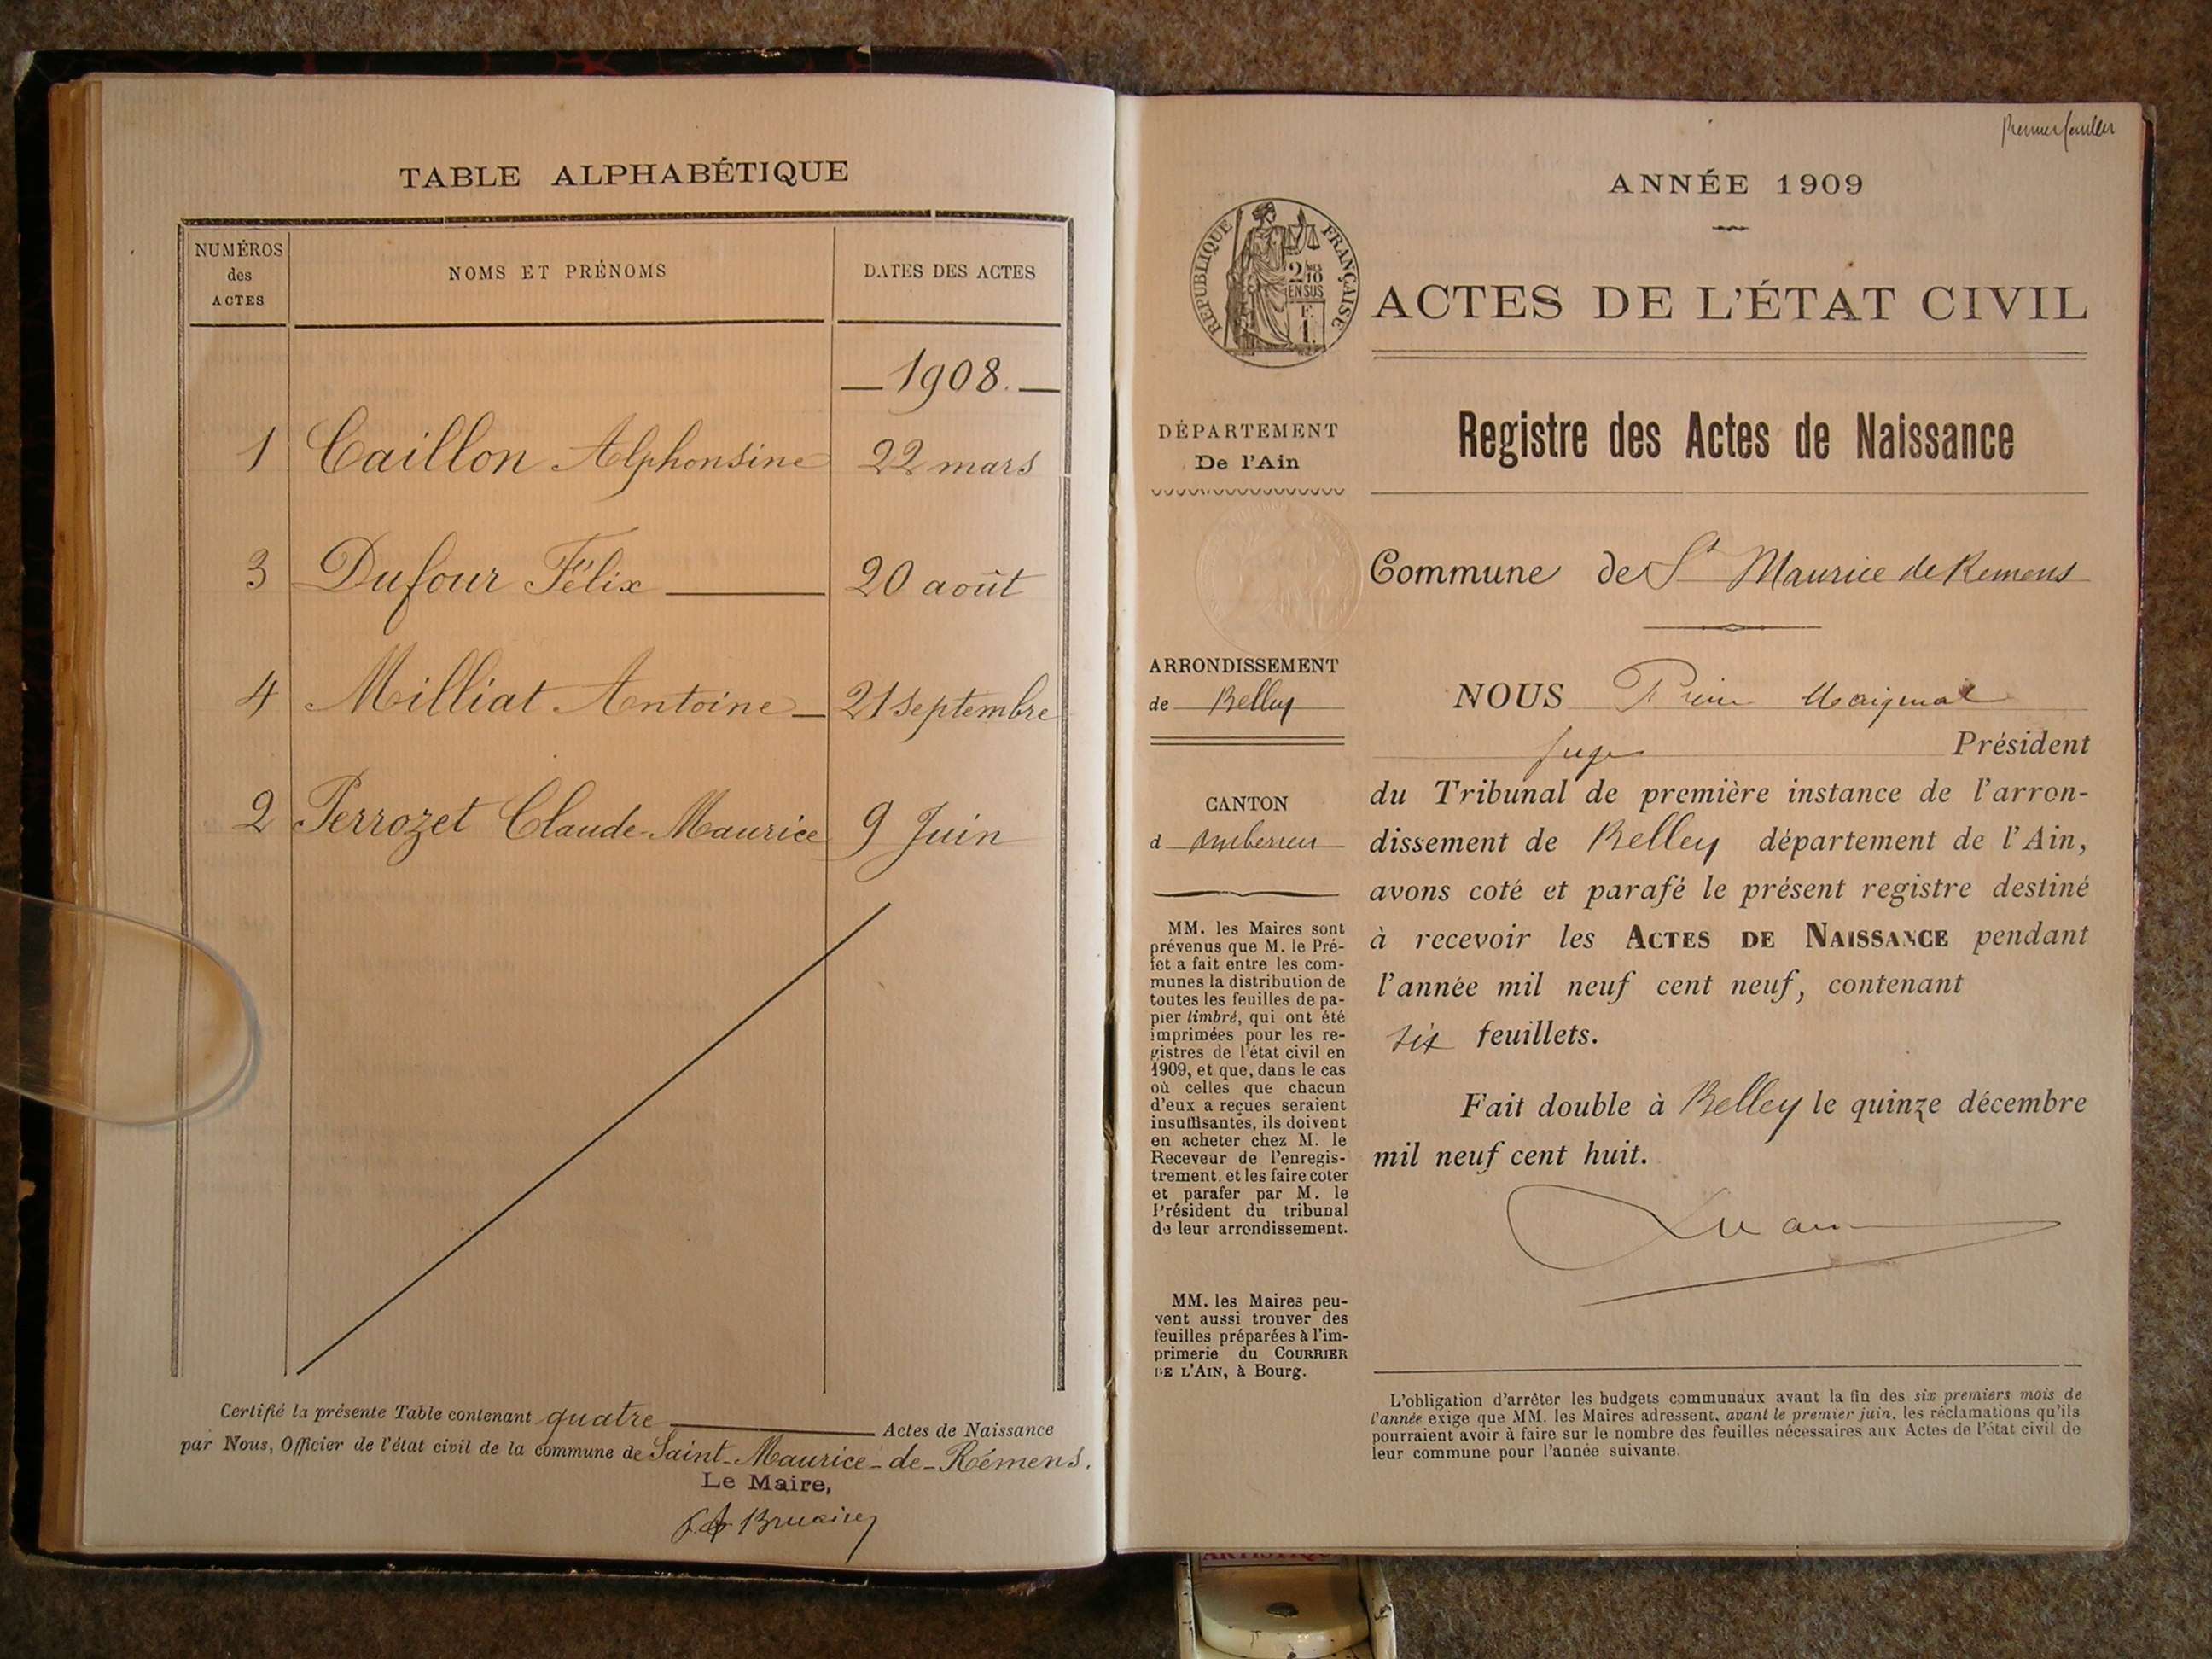 TABLE ALPHABÉTIQUE
NUMÉROS
des
ACTES
NOMS ET PRÉNOMS
DATES DES ACTES
1908.
1 Caillon Alphonsine 22 mars
3 Dufour Félix 20 août
4 Milliat Antoine 21 septembre
2 Perrozet Claude-Maurice 9 Juin
Certifié la présente Table contenant quatre Actes de Naissance
par Nous, Officier de l'état civil de la commune de Saint-Maurice-de-Rémens.
Le Maire,
premier feuillet
ANNÉE 1909
RÉPUBLIQUE FRANÇAISE
2/10
EN SUS
F.
1.
ACTES DE L'ÉTAT CIVIL
DÉPARTEMENT
De l'Ain
Registre des Actes de Naissance
Commune de St Maurice de Remens
ARRONDISSEMENT
de Belley
CANTON
d Amberieu
MM. les Maires sont
prévenus que M. le Pré-
fet a fait entre les com-
munes la distribution de
toutes les feuilles de pa-
pier timbré, qui ont été
imprimées pour les re-
gistres de l'état civil en
1909, et que, dans le cas
où celles que chacun
d'eux a reçues seraient
insuffisantes, ils doivent
en acheter chez M. le
Receveur de l'enregis-
trement. et les faire coter
et parafer par M. le
Président du tribunal
de leur arrondissement.
MM. les Maires peu-
vent aussi trouver des
feuilles préparées à l'im-
primerie du COURRIER
DE L'AIN, à Bourg.
NOUS
juge Président
du Tribunal de première instance de l'arron-
dissement de Belley département de l'Ain,
avons coté et parafé le présent registre destiné
à recevoir les ACTES DE NAISSANCE pendant
l'année mil neuf cent neuf, contenant
six feuillets.
Fait double à Belley le quinze décembre
mil neuf cent huit.
L'obligation d'arrêter les budgets communaux avant la fin des six premiers mois de
l'année exige que MM. les Maires adressent, avant le premier juin, les réclamations qu'ils
pourraient avoir à faire sur le nombre des feuilles nécessaires aux Actes de l'état civil de
leur commune pour l'année suivante.